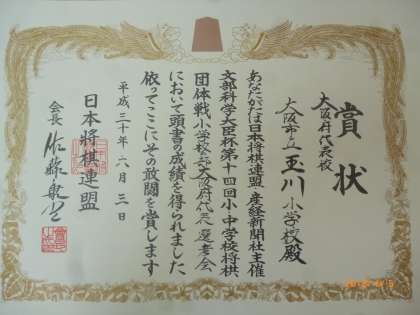 賞状
大阪府代表校
大阪市立玉川小学校殿
あなたがたは日本将棋連盟、産経新聞社主催
文部科学大臣杯第十四回小・中学校将棋
団体戦小学校の部大阪府代表選考会
において頭書の成績を得られました
依ってここにその敢闘を賞します
平成三十年六月三日
日本将棋連盟
会長 佐藤康光